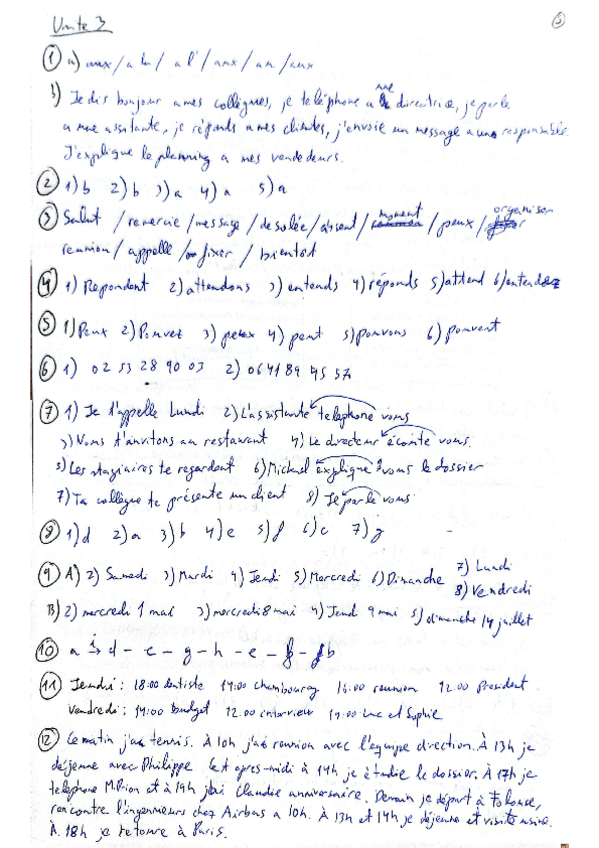 Unite 3
3
① a) aux / a la / a l' / aux / au / aux
b) Je dis bonjour a mes collègues, je teléphone a une directrice, je parle
a une assitante, je réponds a mes clientes, j'envoie un message a une responsable.
J'explique le planning a mes vendedeurs.
② 1) b 2) b 3) a 4) a 5) a
③ Salut / remercie / message / desolée / absent / moment / peux / organiser
reunion / appelle / fixer / bientot
④ 1) Repondent 2) attendons 3) entends 4) réponds 5) attend 6) entendez
⑤ 1) Peux 2) Pouvez 3) peux 4) peut 5) pouvons 6) peuvent
⑥ 1) 02 53 28 90 03 2) 06 41 89 95 57
⑦ 1) Je t'appelle Lundi 2) L'assistante telephone vous
3) Vous t'invitons au restaurant 4) Le directeur écoute vous.
5) Les stagiaires te regardent 6) Michael explique vous le dossier
7) Ta collègue te présente un client 8) Je parle vous
⑧ 1) d 2) a 3) b 4) e 5) f 6) c 7) g
⑨ A) 2) Samedi 3) Mardi 4) Jeudi 5) Mercredi 6) Dimanche 7) Lundi
8) Vendredi
B) 2) mercredi 1 mai 3) mercredi 8 mai 4) Jeudi 9 mai 5) dimanche 14 juillet
⑩ a d - c - g - h - e - f - b
⑪ Jeudi : 18:00 dentiste 14:00 chambourg 16:00 reunion 12.00 President
Vendredi : 14:00 Budget 12.00 interview 19:00 Luc et Sophie
⑫ Ce matin j'ai tennis. À 10h j'ai reunion avec l'equipe direction. À 13h je
dejeune avec Philippe Cet apres-midi à 14h je étudie le dossier. À 17h je
telephone M. Prion et à 19h j'ai Claudie anniversaire. Demain je départ à Tolouse,
rencontre l'ingenneurs chez Airbus a 10h. À 13h et 14h je déjeune et visite usine.
À 18h je retoure à Paris.